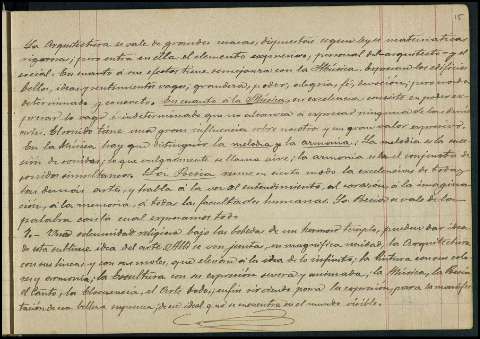 15
La Arquitectura se vale de grandes masas, dispuestas segun leyes matemáticas
rigorosas; pero entra en ella el elemento expresivo, personal del arquitecto y el
social. En cuanto á sus efectos tiene semejanza con la Música. Expresan los edificios
bellos, ideas y sentimientos vagos; grandeza, poder, alegria, fé, devoción; pero no nada
determinado y concreto. En cuanto á la Música, su excelencia consiste en poder ex-
presar lo vago é indeterminado que no alcanza á expresar ninguna de las demás
artes. El sonido tiene una gran influencia sobre nosotros y un gran valor expresivo.
En la Música hay que distinguir la melodía y la armonía. La melodía es la suce-
sión de sonidos, lo que vulgarmente se llama aire; la armonía es el conjunto de
sonidos simultáneos. La Poesía reune en cierto modo las excelencias de todas
las demás artes, y habla á la vez al entendimiento, al corazón, á la imagina-
ción, á la memoria, á todas las facultades humanas. La Poesía se vale de la
palabra con la cual expresamos todo.
Una solemnidad religiosa bajo las bóvedas de un hermoso templo, pueden dar idea
de esta sublime idea del arte. Allí se ven juntas, en magnífica unidad, la Arquitectura
con sus líneas y con sus moles, que elevan á la idea de lo infinito; la Pintura con sus colo-
res y armonía; la Escultura con su expresión severa y animada; la Música, la Poesía
el Canto, la Elocuencia, el Arte todo, en fin sirviendo para la expresión, para la manifes-
tación de una belleza suprema, de un ideal que no se encuentra en el mundo visible.